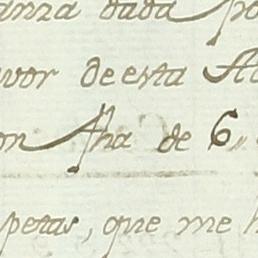 anza dada po
vor de esta A
on fha de 6
petas, que me h